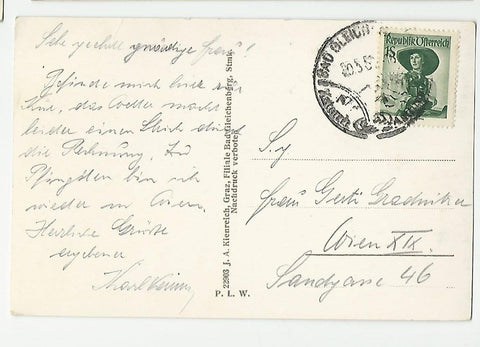 Sehr geehrte gnädige Frau!
Befinde mich hier zur
Kur, das Wetter macht
leider einen Strich durch
die Rechnung. Zu
Pfingsten bin ich
wieder in Wien.
Herzliche Grüße
ergebener
22903 J. A. Kienreich, Graz, Filiale Bad Gleichenberg, Stmk.
Nachdruck verboten
P. L. W.
BAD GLEICH
Republik Österreich
1S
S.g
Frau Gerti Gradniker
Wien XIX.
Sandgasse 46